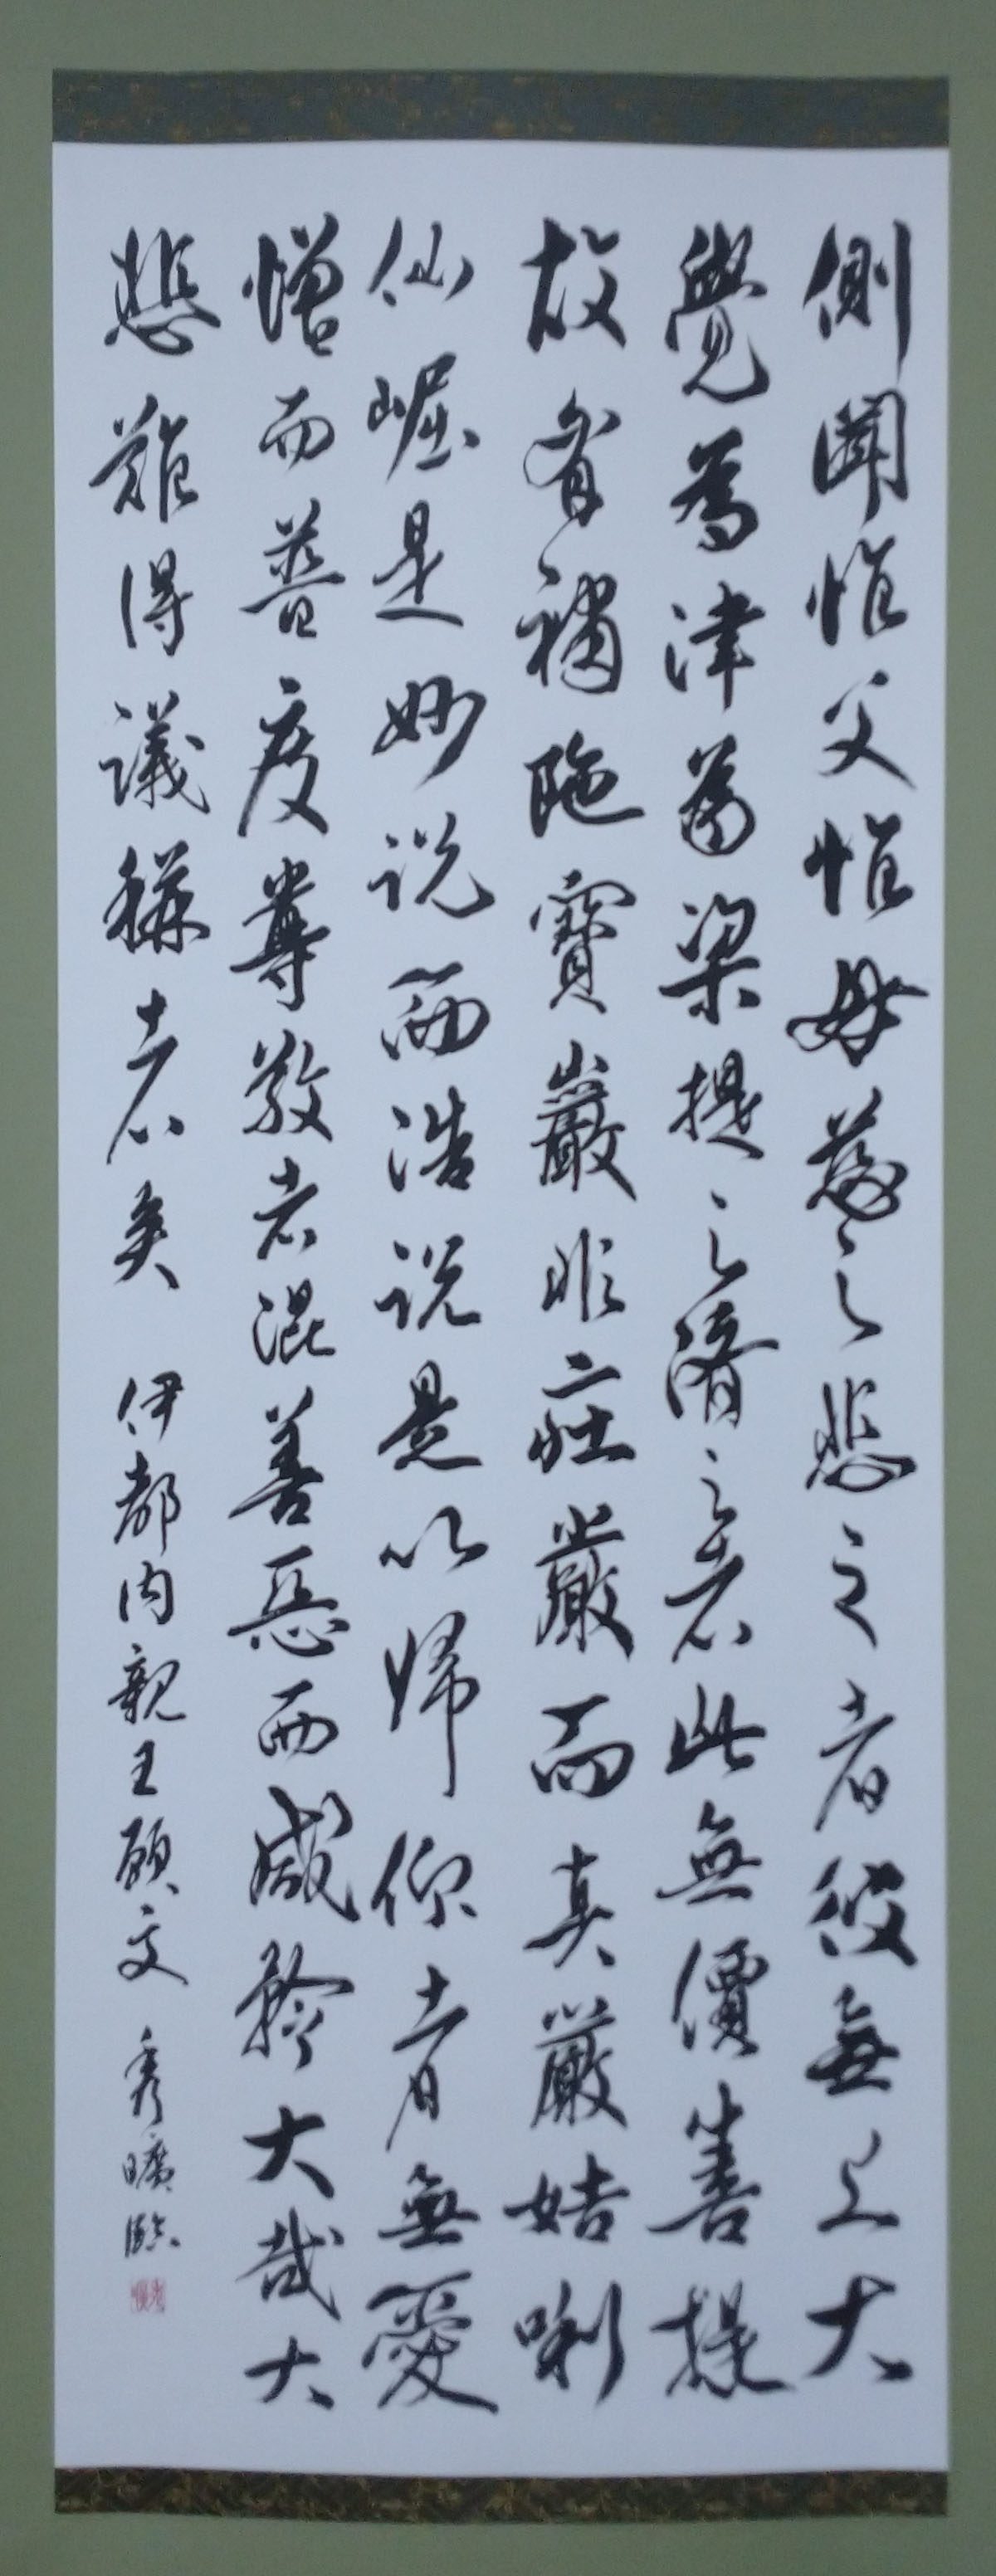 側聞惟父惟母慈之悲之者彼無上大
覺為津為梁提之濟之者此無價善提
故有補陁寶巖非莊嚴而真嚴姞唎
仙崛是妙說而浩說是以歸仰者無愛
憎而普度尊敬者混善惡而咸矜大哉大
悲難得議稱者矣 伊都內親王願文 秀曠臨